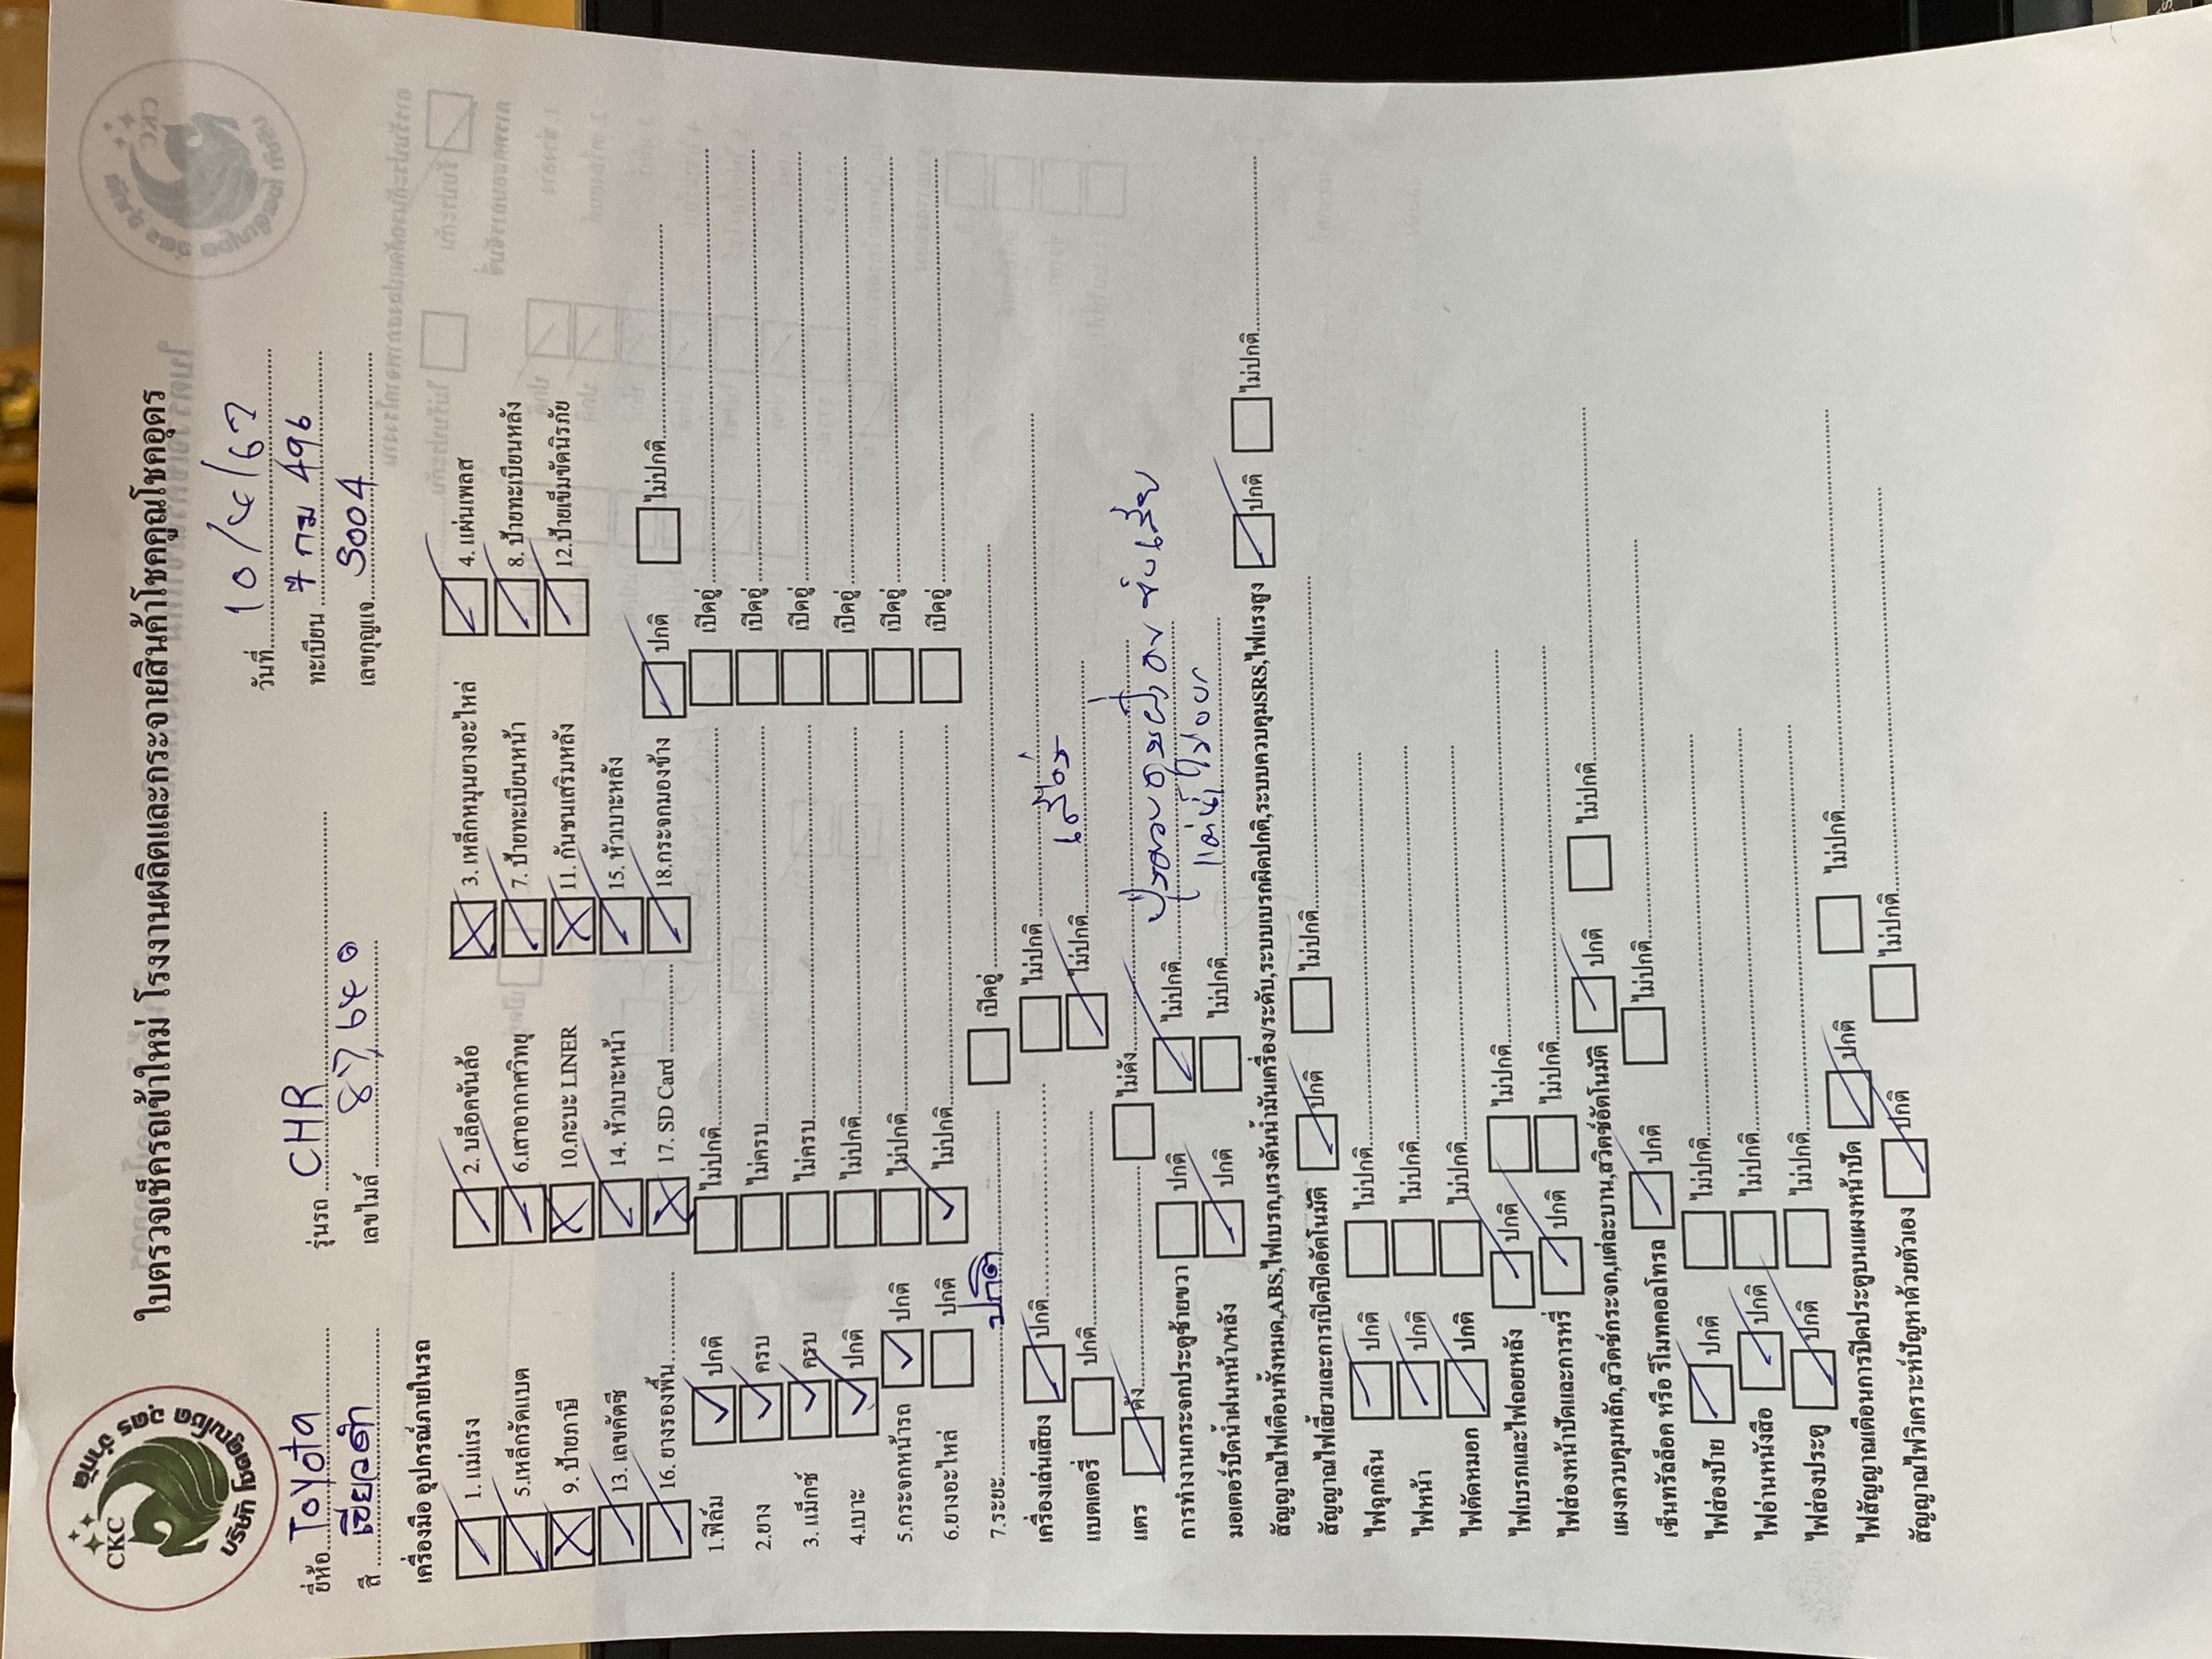 CKC
บริษัท โชคคูณโชค อุดร จำกัด
ใบตรวจเช็ครถเข้าใหม่ โรงงานผลิตและกระจายสินค้าโชคคูณโชคอุดร
วันที่ 10/4/67
ยี่ห้อ Toyota รุ่นรถ CHR ทะเบียน 7 กม 496
สี เขียวดำ เลขไมล์ 87,640 เลขกุญแจ S004
เครื่องมือ อุปกรณ์ภายในรถ
1. แม่แรง 2. บล็อคขันล้อ 3. เหล็กหมุนยางอะไหล่ 4. แผ่นเพลส
5.เหล็กรัคแบต 6.เสาอากาศวิทยุ 7. ป้ายทะเบียนหน้า 8. ป้ายทะเบียนหลัง
9. ป้ายภาษี 10.กะบะ LINER 11. กันชนเสริมหลัง 12.ป้ายเข็มขัดนิรภัย
13. เลขคัตซี 14. หัวเบาะหน้า 15. หัวเบาะหลัง
16. ยางรองพื้น 17. SD Card 18.กระจกมองข้าง ปกติ ไม่ปกติ
1.ฟิล์ม ปกติ ไม่ปกติ เปิดอู่
2.ยาง ครบ ไม่ครบ เปิดอู่
3. แม็กซ์ ครบ ไม่ครบ เปิดอู่
4.เบาะ ปกติ ไม่ปกติ เปิดอู่
5.กระจกหน้ารถ ปกติ ไม่ปกติ เปิดอู่
6.ยางอะไหล่ ปกติ ไม่ปกติ เปิดอู่
7.ระยะ ปกติ เปิดอู่
เครื่องเล่นเสียง ปกติ ไม่ปกติ
แบตเตอรี่ ปกติ ไม่ปกติ
แตร ดัง ไม่ดัง
การทำงานกระจกประตูซ้ายขวา ปกติ ไม่ปกติ
มอเตอร์ปัดน้ำฝนหน้า/หลัง ปกติ ไม่ปกติ
สัญญาณไฟเตือนทั้งหมด,ABS,ไฟเบรก,แรงดันน้ำมันเครื่อง/ระดับ,ระบบเบรกผิดปกติ,ระบบควบคุมSRS,ไฟแรงสูง ปกติ ไม่ปกติ
สัญญาณไฟเลี้ยวและการเปิดปิดอัตโนมัติ ปกติ ไม่ปกติ
ไฟฉุกเฉิน ปกติ ไม่ปกติ
ไฟหน้า ปกติ ไม่ปกติ
ไฟตัดหมอก ปกติ ไม่ปกติ
ไฟเบรกและไฟถอยหลัง ปกติ ไม่ปกติ
ไฟส่องหน้าปัดและการหรี่ ปกติ ไม่ปกติ
แผงควบคุมหลัก,สวิตช์กระจก,แต่ละบาน,สวิตช์อัตโนมัติ ปกติ ไม่ปกติ
เซ็นทรัลล็อค หรือ รีโมทคอลโทรล ปกติ ไม่ปกติ
ไฟส่องป้าย ปกติ ไม่ปกติ
ไฟอ่านหนังสือ ปกติ ไม่ปกติ
ไฟส่องประตู ปกติ ไม่ปกติ
ไฟสัญญาณเตือนการปิดประตูบนแผงหน้าปัด ปกติ ไม่ปกติ
สัญญาณไฟวิเคราะห์ปัญหาด้วยตัวเอง ปกติ ไม่ปกติ